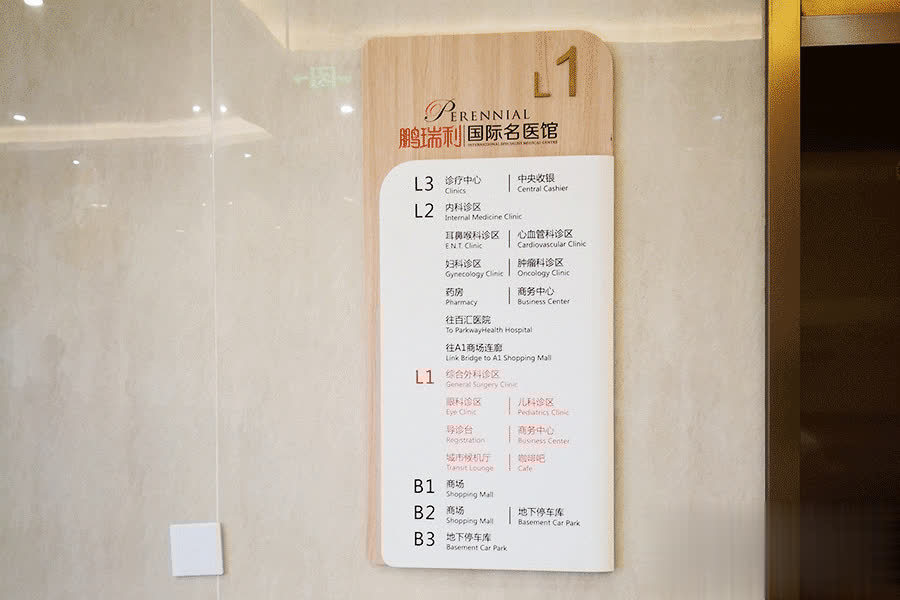 L1
PERENNIAL
鹏瑞利 国际名医馆
INTERNATIONAL SPECIALIST MEDICAL CENTRE
L3 诊疗中心 中央收银
Clinics Central Cashier
L2 内科诊区
Internal Medicine Clinic
耳鼻喉科诊区 心血管科诊区
E.N.T. Clinic Cardiovascular Clinic
妇科诊区 肿瘤科诊区
Gynecology Clinic Oncology Clinic
药房 商务中心
Pharmacy Business Center
往百汇医院
To ParkwayHealth Hospital
往A1商场连廊
Link Bridge to A1 Shopping Mall
L1 综合外科诊区
General Surgery Clinic
眼科诊区 儿科诊区
Eye Clinic Pediatrics Clinic
导诊台 商务中心
Registration Business Center
城市候机厅 咖啡吧
Transit Lounge Cafe
B1 商场
Shopping Mall
B2 商场 地下停车库
Shopping Mall Basement Car Park
B3 地下停车库
Basement Car Park